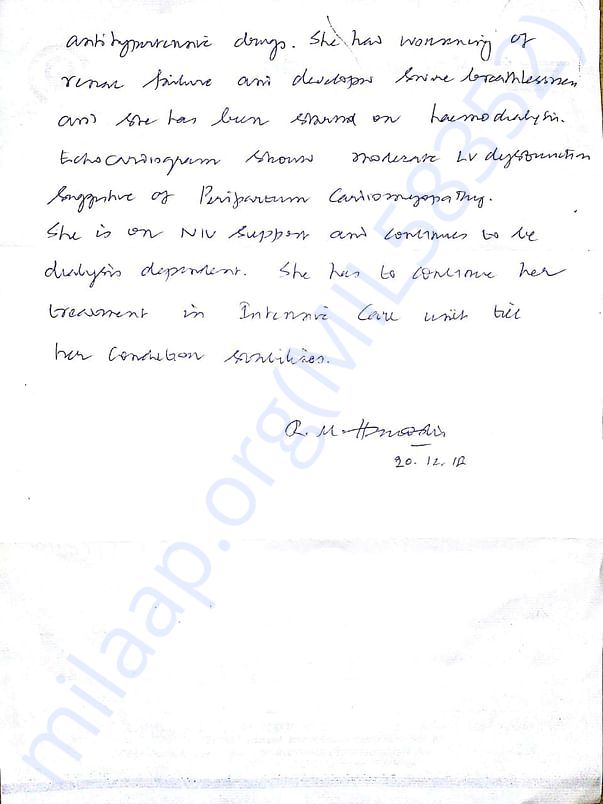 antihypertensive drugs. She has worsening of
renal failure and developed severe breathlessness
and she has been started on haemodialysis.
Echocardiogram shows moderate LV dysfunction
suggestive of Peripartum Cardiomyopathy.
She is on NIV support and continues to be
dialysis dependent. She has to continue her
treatment in Intensive Care unit till
her condition stabilises.
R. M.
20.12.18
milaap.org(MIL58352)